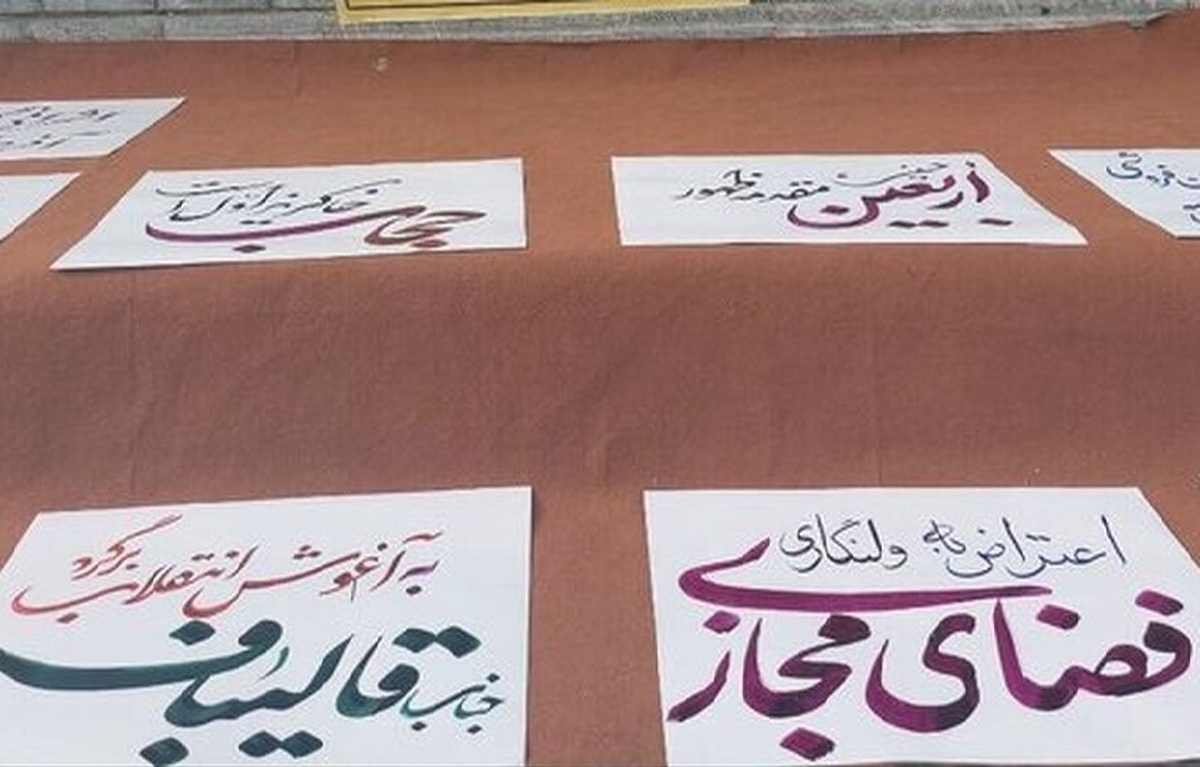 حجاب
خاکریز اول است
اربعین حسینی
مقدمه ظهور
فروشی
به آغوش انقلاب برگرد
جناب قالیباف
اعتراض به ولنگاری
فضای مجازی